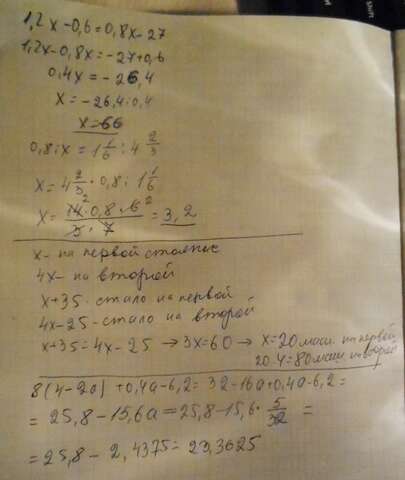 1,2x-0,6=0,8x-27
1,2x-0,8x=-27+0,6
0,4x=-26,4
x=-26,4:0,4
x=-66
0,8:x=1 1/6 : 4 2/3
x=4 2/3 · 0,8 : 1 1/6
x= 14² · 0,8 · 6² / 3 · 7 = 3,2
x- на первой стоянке
4x- на второй
x+35 - стало на первой
4x-25 - стало на второй
x+35=4x-25 → 3x=60 → x=20 маш. на первой
20·4=80 маш на второй
8(4-2a)+0,4a-6,2=32-16a+0,4a-6,2=
=25,8-15,6a=25,8-15,6· 5/32 =
=25,8-2,4375=23,3625
Shift